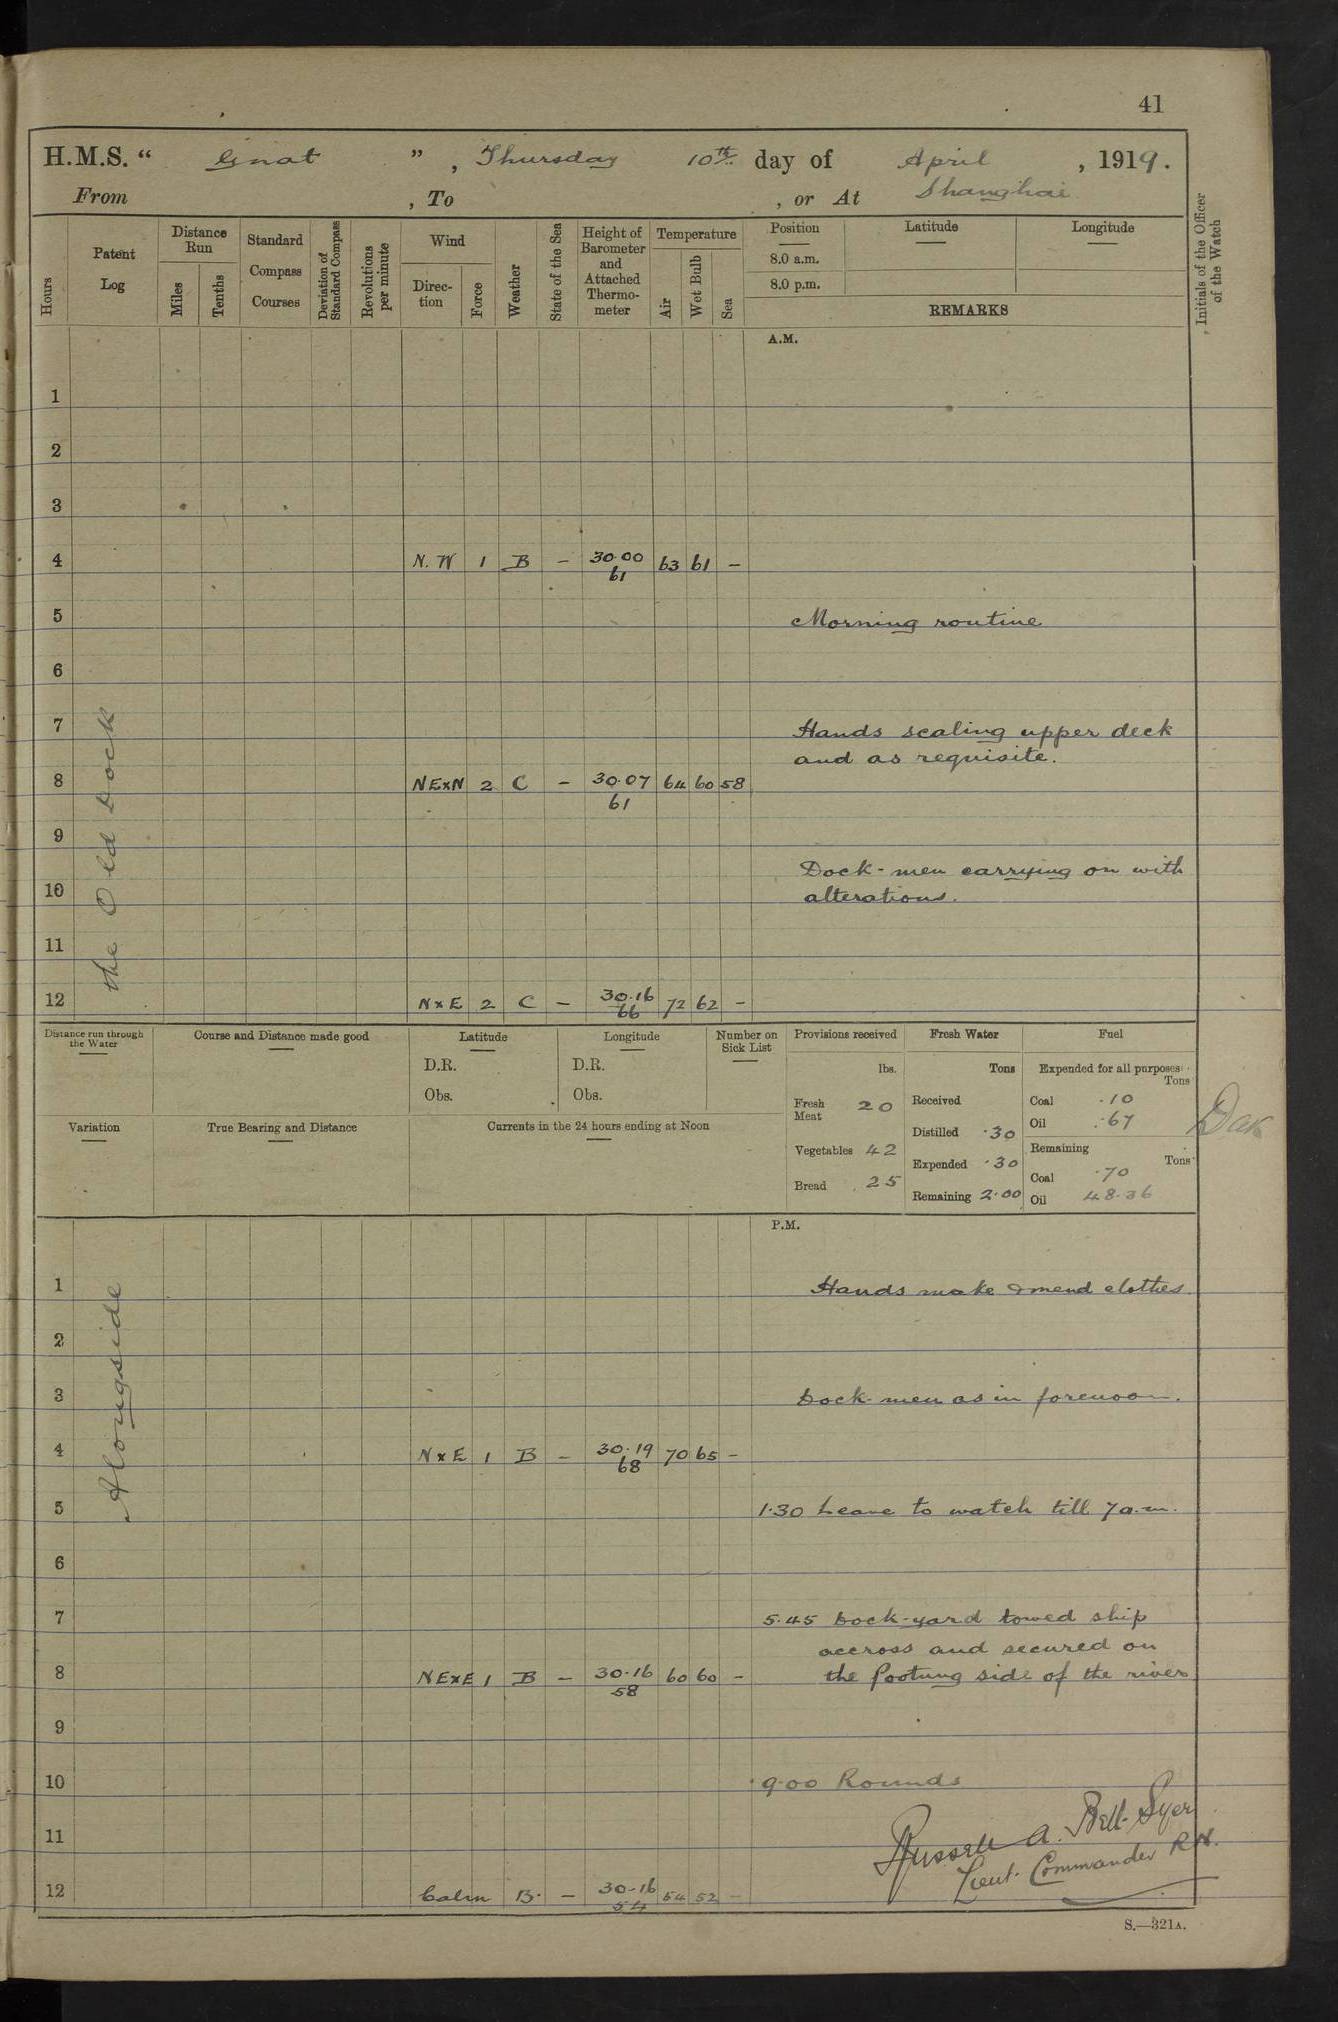 41
H.M.S. “ Gnat ” , Thursday 10th day of April , 1919.
From , To , or At Shanghai
Hours
Patent Log
Distance Run
Miles
Tenths
Standard Compass Courses
Deviation of Standard Compass
Revolutions per minute
Wind
Direc-tion
Force
Weather
State of the Sea
Height of Barometer and Attached Thermo-meter
Temperature
Air
Wet Bulb
Sea
Position
8.0 a.m.
8.0 p.m.
Latitude
Longitude
REMARKS
Initials of the Officer of the Watch
A.M.
1
2
3
4 N.W 1 B – 30.00 63 61 –
61
5 Morning routine
6
7 Hands scaling upper deck
and as requisite.
8 NExN 2 C – 30.07 64 60 58
61
9
10 Dock-men carrying on with
alterations.
11
12 NxE 2 C – 30.16 72 62 –
66
Alongside the Old Dock
Distance run through the Water
Course and Distance made good
Latitude
D.R.
Obs.
Longitude
D.R.
Obs.
Number on Sick List
Variation
True Bearing and Distance
Currents in the 24 hours ending at Noon
Provisions received
lbs.
Fresh Meat 20
Vegetables 42
Bread 25
Fresh Water
Tons
Received
Distilled .30
Expended .30
Remaining 2.00
Fuel
Expended for all purposes
Tons
Coal .10
Oil .67
Remaining
Tons
Coal .70
Oil 48.36
P.M.
1 Hands make & mend clothes
2
3 Dock-men as in forenoon.
4 NxE 1 B – 30.19 70 65 –
68
5 1.30 Leave to watch till 7 a.m.
6
7 5.45 Dock-yard towed ship
accross and secured on
8 NExE 1 B – 30.16 60 60 – the Pootung side of the river
58
9
10 9.00 Rounds
11 Russell A. Bell-Syer
Lieut. Commander R.N.
12 Calm B. – 30.16 54 52 –
54
S.—321A.